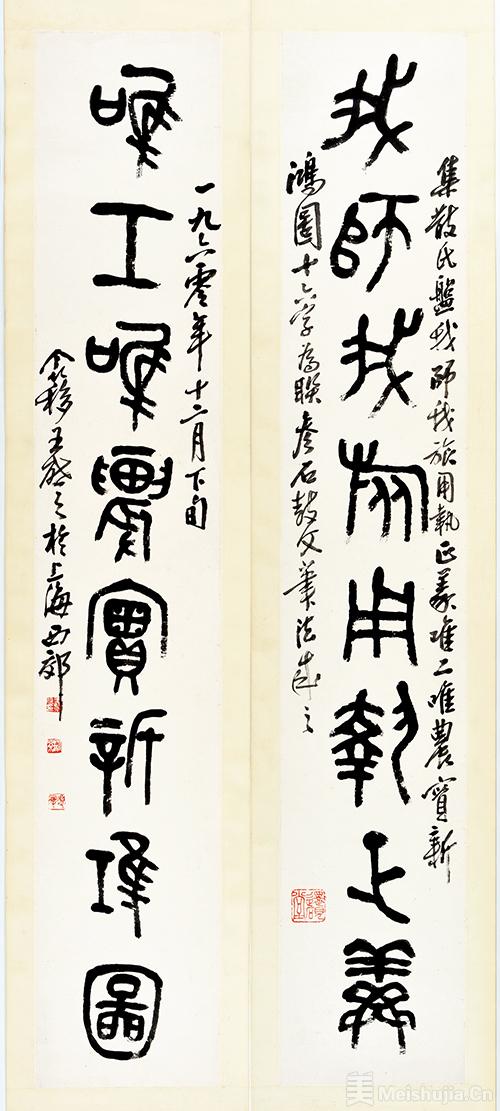 我師我旅用執正義
集散氏盤我師我旅用執正義唯工唯農實新
鴻圖十六字為聯參石鼓文筆法成之
唯工唯農實新鴻圖
一九六零年十二月下旬
王盛之於上海西郊
美 Meishujia.Cn